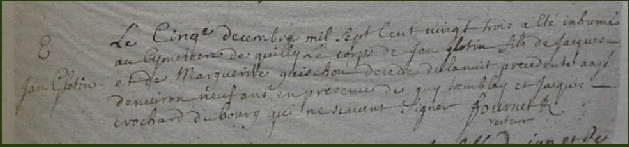 E
Jan Glotin
Le Cinqe decembre mil sept Cent vingt trois a Eté inhumé
au Cymettere de quilly Le corps de Jan glotin fils de Jacques
et de Marguerite guischou décédé du la nuit precedente aagé
denviron neuf ans en presence de guy tomblay et Jacques
crochard du bourg qui ne scavent signer fournet R
recteur